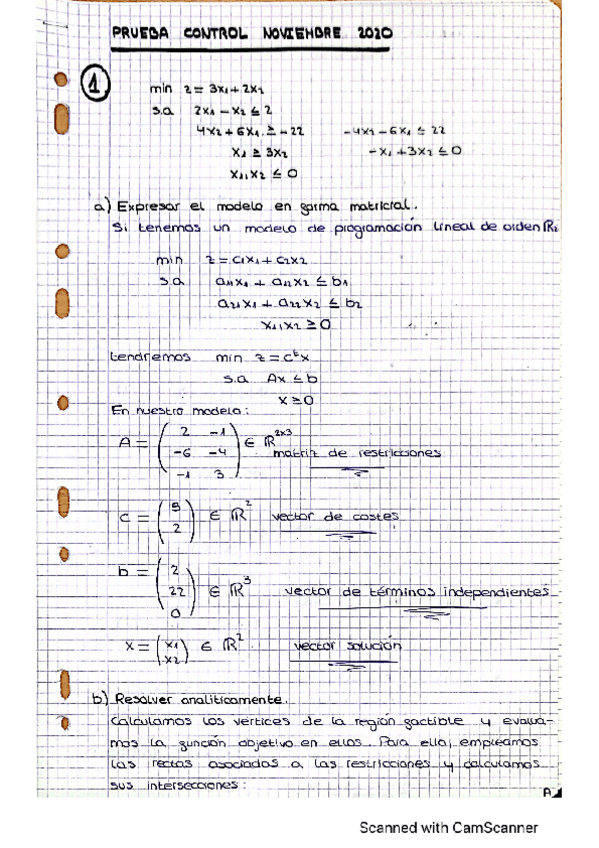 PRUEBA CONTROL NOVIEMBRE 2020
1
min z = 3x1 + 2x2
s.a 2x1 - x2 ≤ 2
4x2 + 6x1 ≥ -22 -4x2 - 6x1 ≤ 22
x1 ≥ 3x2 -x1 + 3x2 ≤ 0
x1, x2 ≤ 0
a) Expresar el modelo en forma matricial.
Si tenemos un modelo de programación lineal de orden R2
min z = c1x1 + c2x2
s.a a11x1 + a12x2 ≤ b1
a21x1 + a22x2 ≤ b2
x1, x2 ≥ 0
tendremos min z = c^t x
s.a Ax ≤ b
x ≥ 0
En nuestro modelo:
A = ( 2 -1
-6 -4
-1 3 ) ∈ R^2x3 matriz de restricciones
c = ( 3
2 ) ∈ R^2 vector de costes
b = ( 2
22
0 ) ∈ R^3 vector de términos independientes
x = ( x1
x2 ) ∈ R^2 vector solución
b) Resolver analíticamente.
Calculamos los vértices de la región factible y evalua-
mos la función objetivo en ellos. Para ello, empleamos
las rectas asociadas a las restricciones y calculamos
sus intersecciones:
Scanned with CamScanner